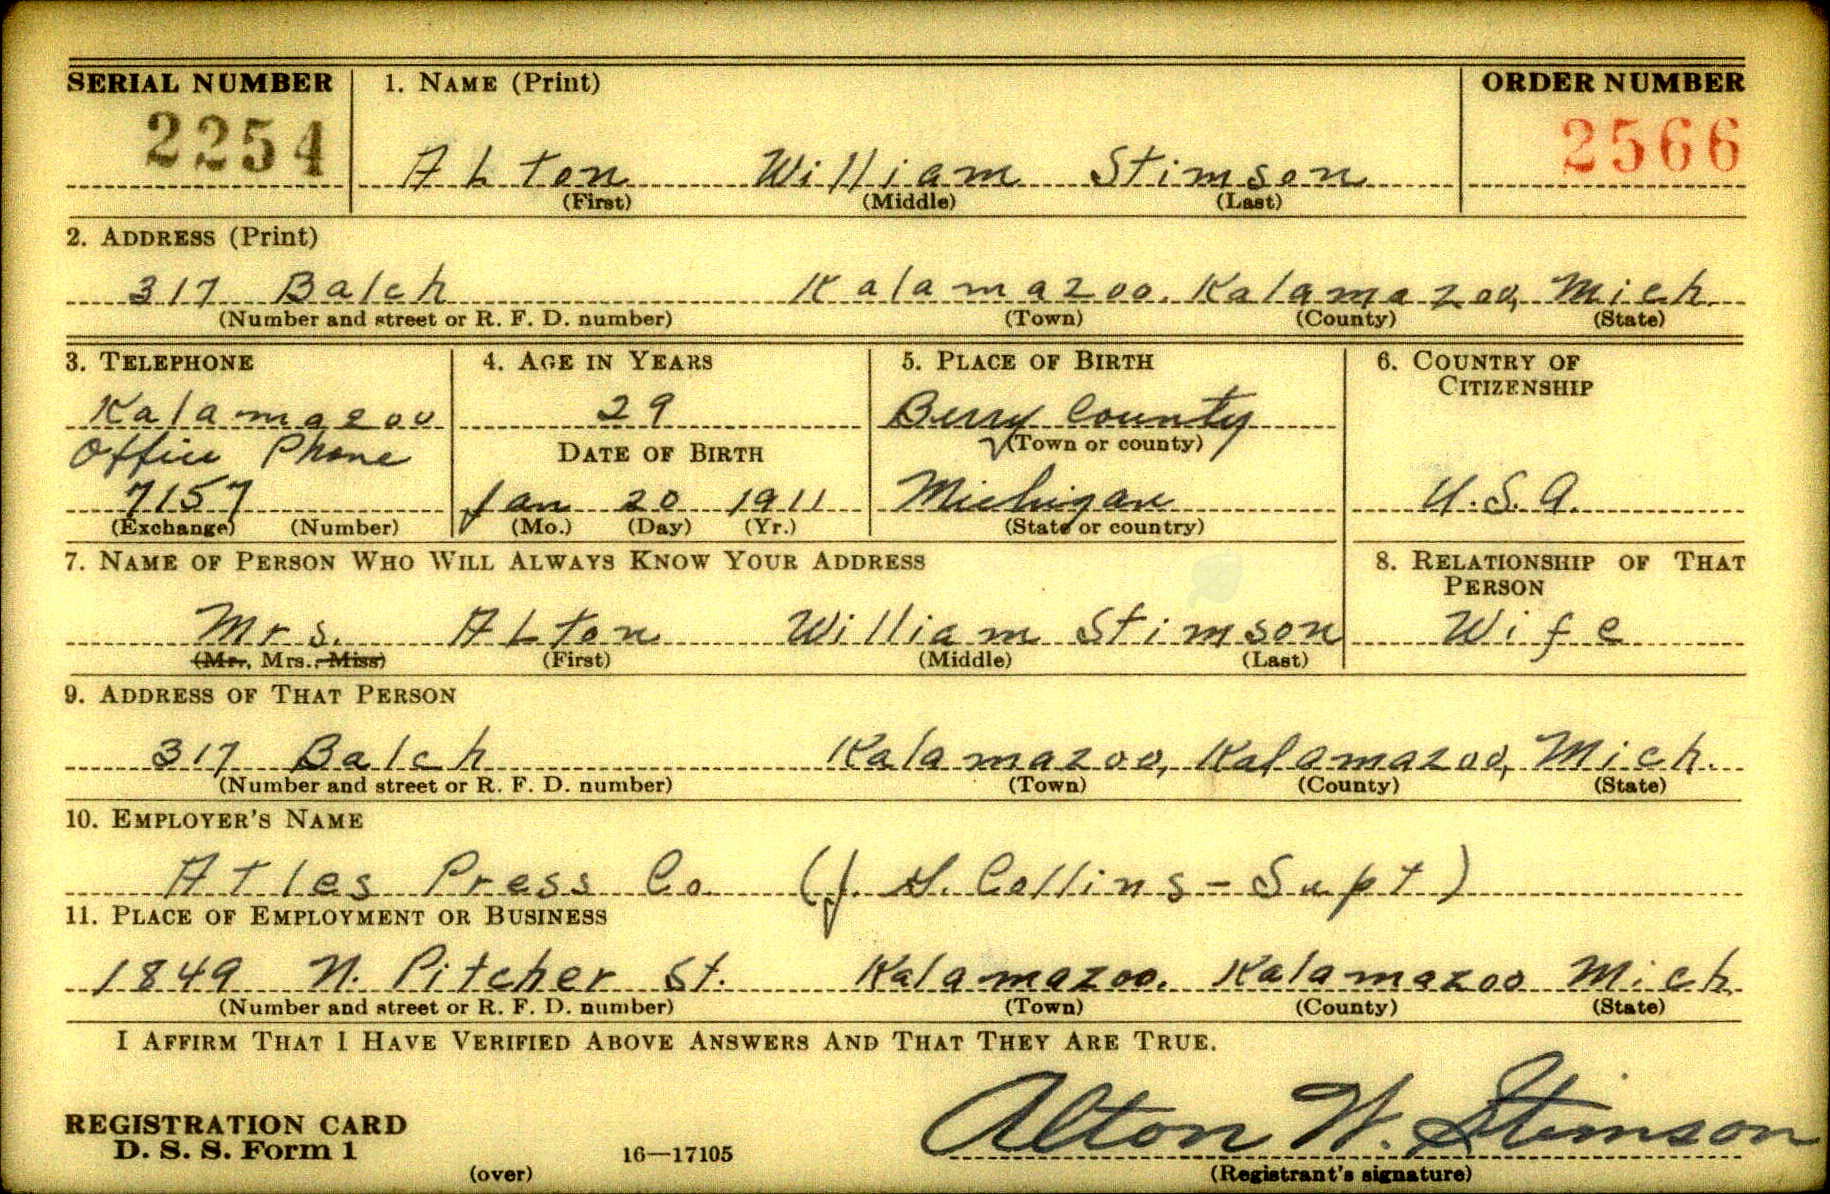 SERIAL NUMBER 1. NAME (Print) ORDER NUMBER
2254 ALton William Stimson 2566
(First) (Middle) (Last)
2. ADDRESS (Print)
317 Balch Kalamazoo, Kalamazoo, Mich.
(Number and street or R. F. D. number) (Town) (County) (State)
3. TELEPHONE 4. AGE IN YEARS 5. PLACE OF BIRTH 6. COUNTRY OF CITIZENSHIP
Kalamazoo 29 Berry County
Office Phone DATE OF BIRTH (Town or county)
7157 Jan 20 1911 Michigan U.S.A.
(Exchange) (Number) (Mo.) (Day) (Yr.) (State or country)
7. NAME OF PERSON WHO WILL ALWAYS KNOW YOUR ADDRESS 8. RELATIONSHIP OF THAT PERSON
Mrs. ALton William Stimson Wife
(Mr., Mrs., Miss) (First) (Middle) (Last)
9. ADDRESS OF THAT PERSON
317 Balch Kalamazoo, Kalamazoo, Mich.
(Number and street or R. F. D. number) (Town) (County) (State)
10. EMPLOYER'S NAME
Atles Press Co (J. H. Collins - Supt)
11. PLACE OF EMPLOYMENT OR BUSINESS
1849 N. Pitcher St. Kalamazoo. Kalamazoo Mich
(Number and street or R. F. D. number) (Town) (County) (State)
I AFFIRM THAT I HAVE VERIFIED ABOVE ANSWERS AND THAT THEY ARE TRUE.
Alton W. Stimson
REGISTRATION CARD
D. S. S. Form 1 16—17105
(over) (Registrant's signature)